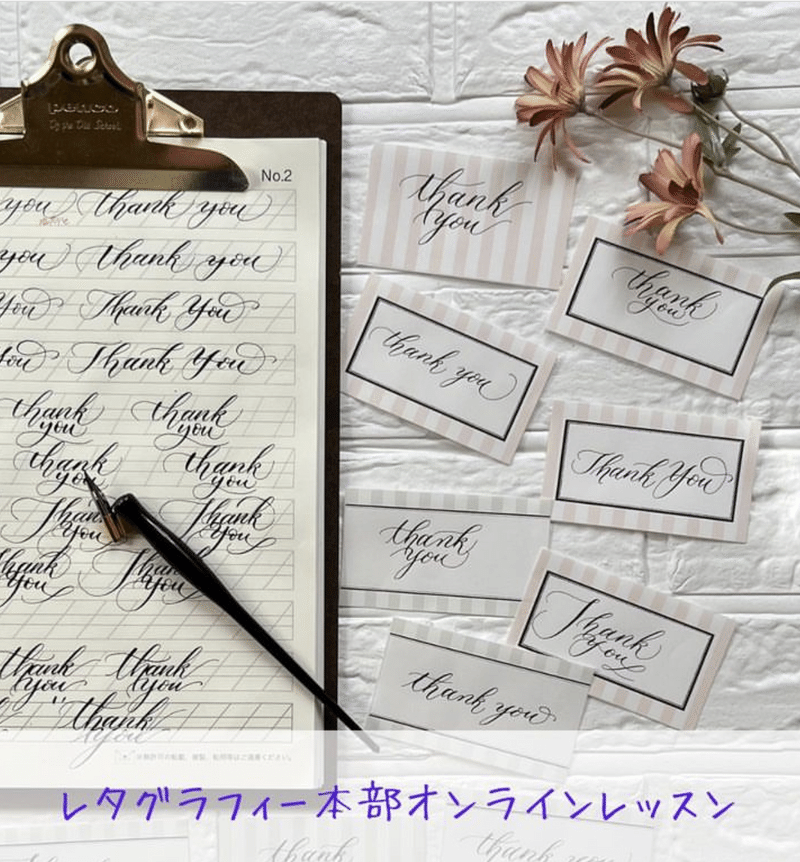 penco
No.2
you thank you
you thank you
You Thank You
You Thank You
thank thank
you you
thank thank
you you
Thank Thank
You You
Thank Thank
You You
thank thank
You You
thank
you
thank
you
thank
you
thank you
Thank You
thank
you
Thank
You
thank you
レタグラフィー本部オンラインレッスン
thank
you
thank you